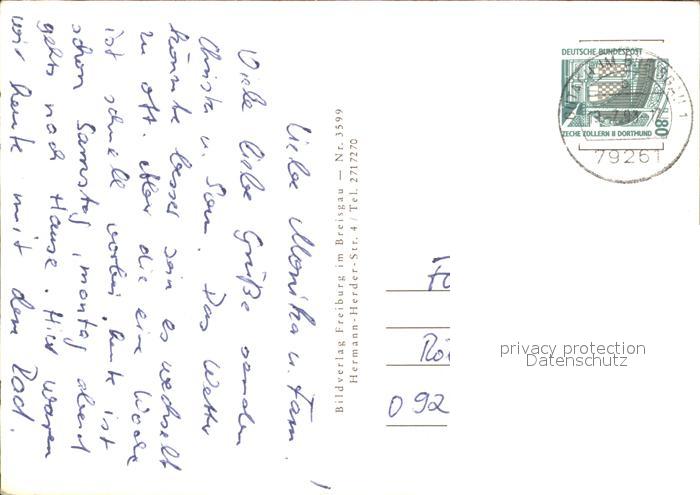 Liebe Monika u. Fam. !
Viele liebe Grüße senden
Christa u. Som. Das Wetter
könnte besser sein es wechselt
zu oft. Aber die eine Woche
ist schnell vorbei, heute ist
schon Samstag, montag abend
gehts nach Hause. Hier waren
wir heute mit dem Rad.
Bildverlag Freiburg im Breisgau — Nr. 3599
Hermann-Herder-Str. 4 / Tel. 2717270
DEUTSCHE BUNDESPOST
80
ZECHE ZOLLERN II DORTMUND
79261
092
privacy protection
Datenschutz